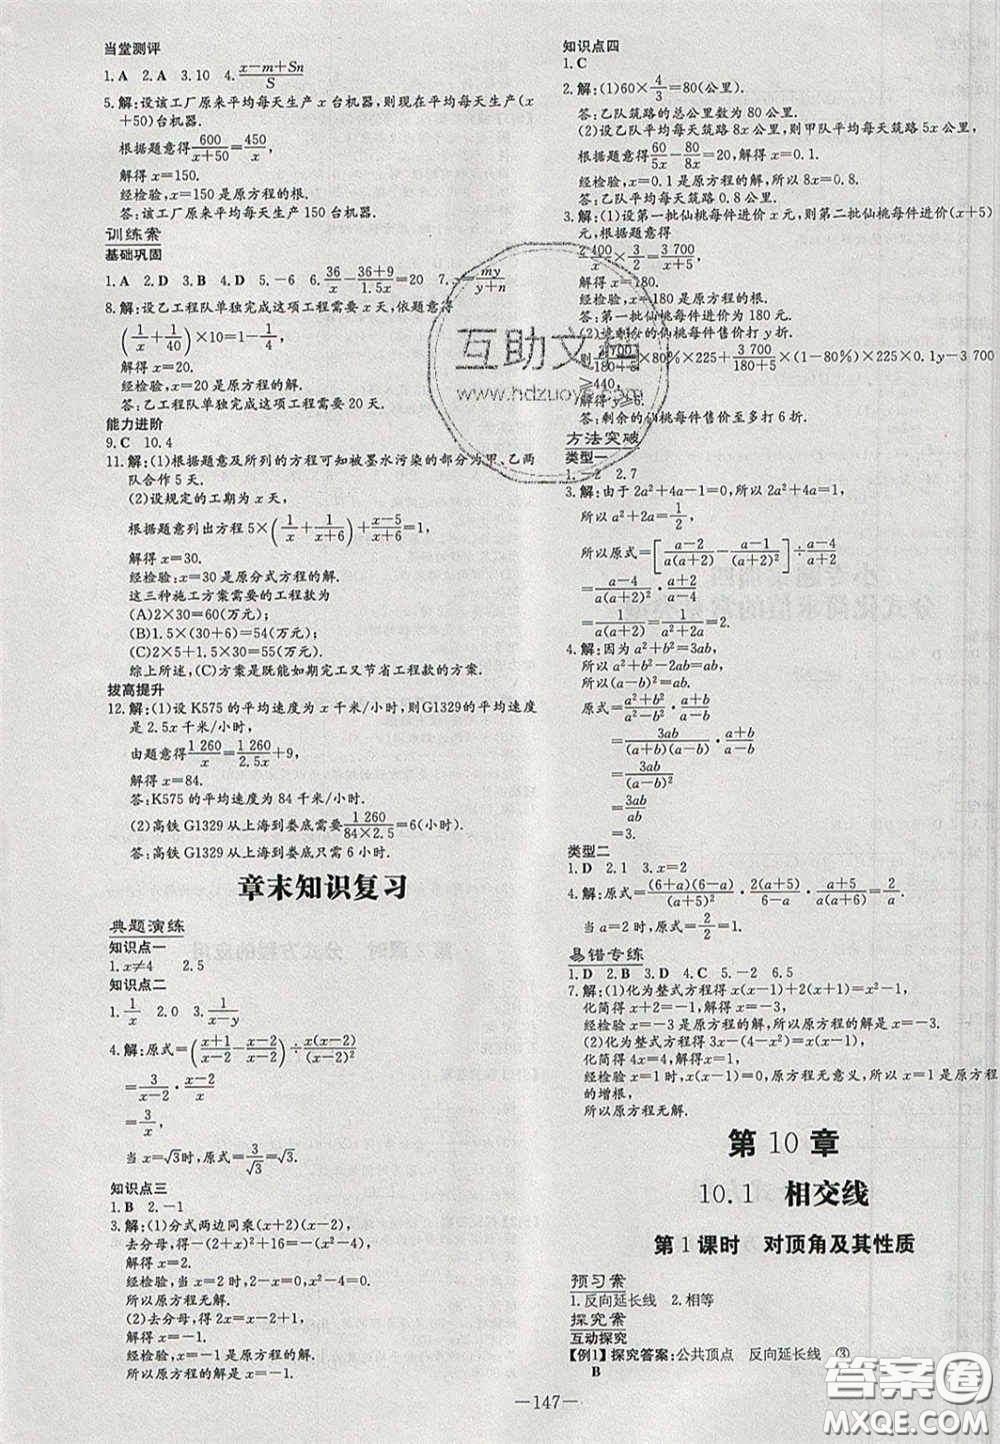 当堂测评
1. A 2. A 3. 10 4. (x-m+Sn)/S
5. 解:设该工厂原来平均每天生产 x 台机器,则现在平均每天生产(x
+50)台机器.
根据题意得 600/(x+50)=450/x,
解得 x=150.
经检验,x=150 是原方程的根.
答:该工厂原来平均每天生产 150 台机器.
训练案
基础巩固
1. A 2. A 3. B 4. D 5. -6 6. 36/x-(36+9)/1.5x=20 7. my/(y+n)
8. 解:设乙工程队单独完成这项工程需要 x 天,依题意得
(1/x+1/40)×10=1-1/4,
解得 x=20.
经检验,x=20 是原方程的解.
答:乙工程队单独完成这项工程需要 20 天.
能力进阶
9. C 10. 4
11. 解:(1)根据题意及所列的方程可知被墨水污染的部分为甲、乙两
队合作 5 天.
(2)设规定的工期为 x 天,
根据题意列出方程 5×(1/x+1/(x+6))+(x-5)/(x+6)=1,
解得 x=30.
经检验,x=30 是原分式方程的解.
这三种施工方案需要的工程款为
(A)2×30=60(万元);
(B)1.5×(30+6)=54(万元);
(C)2×5+1.5×30=55(万元).
综上所述,(C)方案是既能如期完工又节省工程款的方案.
拔高提升
12. 解:(1)设 K575 的平均速度为 x 千米/小时,则G1329的平均速度
是 2.5x 千米/小时,
由题意得 1 260/x=1 260/2.5x+9,
解得 x=84.
答:K575 的平均速度为 84 千米/小时.
(2)高铁 G1329 从上海到娄底需要 1 260/(84×2.5)=6(小时).
答:高铁 G1329 从上海到娄底只需 6 小时.
章末知识复习
典题演练
知识点一
1. x≠4 2. 5
知识点二
1. 1/x 2. 0 3. 1/(x-y)
4. 解:原式=((x+1)/(x-2)-(x-2)/(x-2))÷x(x-2)/(x-2)²
=3/(x-2)·(x-2)/x
=3/x,
当 x=√3时,原式=3/√3=√3.
知识点三
1. B 2. -1
3. 解:(1)分式两边同乘(x+2)(x-2),
去分母,得-(x+2)²+16=-(x-2)²,
解得 x=2.
经检验,当 x=2 时,x-2=0,
所以原方程无解.
(2)去分母,得2x=x-2+1,
解得 x=-1.
经检验,x=-1 是原方程的解.
知识点四
1. C
2. 解:(1)60×4/3=80(公里).
答:乙队筑路的总公里数为 80 公里.
(2)设乙队平均每天筑路 8x 公里,则甲队平均每天筑路 5x 公里,
根据题意得 60/5x-80/8x=20,解得 x=0.1.
经检验,x=0.1 是原方程的解,所以 8x=0.8.
答:乙队平均每天筑路 0.8 公里.
3. 解:(1)设第一批仙桃每件进价 x 元,则第二批仙桃每件进价(x+5)
元,根据题意得
2 400/x×3/2=3 700/(x+5),
解得 x=180.
经检验,x=180 是原方程的解.
答:第一批仙桃每件进价为 180 元.
(2)设剩余的仙桃每件售价打 y 折.
则 3 700/(180+5)×80%×225+3 700/(180+5)×(1-80%)×225×0.1y-3 700
≥440,
解得 y≥6.
答:剩余的仙桃每件售价至多打 6 折.
方法突破
类型一
1. -2 2. 7
3. 解:由于 2a²+4a-1=0,所以 2a²+4a=1,
所以 a²+2a=1/2,
所以原式=[(a-2)/a(a+2)-(a-1)/(a+2)²]÷(a-4)/(a+2)
=(a-4)/a(a+2)²·(a+2)/(a-4)
=1/a(a+2)=1/(a²+2a)=2.
4. 解:因为 a²+b²=3ab,
所以 a²+b²-2ab=ab,
所以(a-b)²=ab.
原式=(a²+b²)/(a²-b²)·(a+b)/(a-b)
=3ab/(a+b)(a-b)·(a+b)/(a-b)
=3ab/(a-b)²
=3ab/ab
=3.
类型二
1. D 2. 1 3. x=2
4. 解:原式=(6+a)(6-a)/(a+5)²·2(a+5)/(6-a)·(a+5)/(a+6)=2,
当 a=2 时,代数式的值为 2.
易错专练
1. D 2. B 3. D 4. C 5. -2 6. 5
7. 解:(1)化为整式方程得 x(x-1)+2(x+1)=x²-1,
化简得 x+2=-1,解得 x=-3,
经检验 x=-3 是原方程的解,所以原方程的解是 x=-3.
(2)化为整式方程得 3x-(4-x²)=x(x+2),
化简得 4x=4,解得 x=1,
经检验 x=1 时,x-1=0,原方程无意义,所以 x=1 是原方程
的增根,
所以原方程无解.
第 10 章
10.1 相交线
第 1 课时 对顶角及其性质
预习案
1. 反向延长线 2. 相等
探究案
互动探究
【例1】探究答案:公共顶点 反向延长线 ③
B
—147—
互助文档
www.hdzuoye.com
答案圈
MXQE.COM